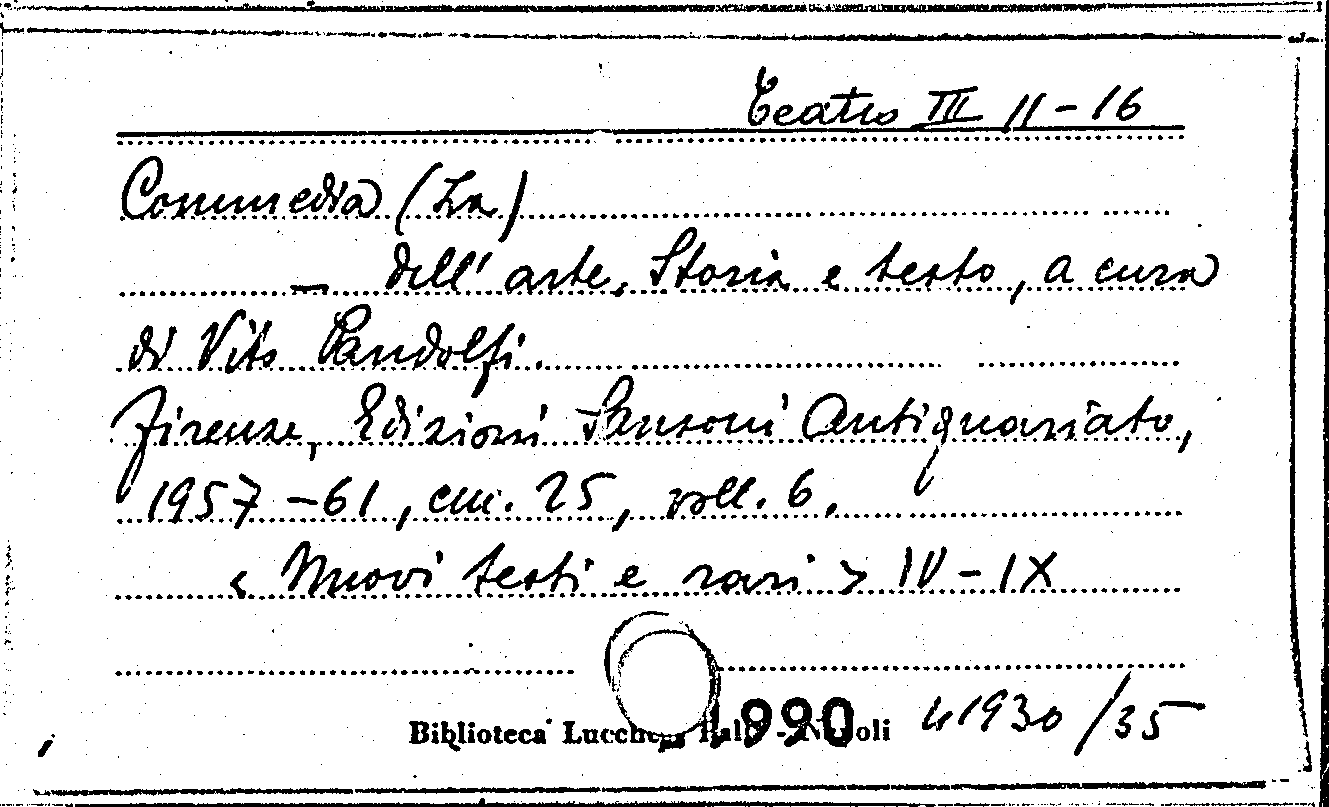 Teatro III 11-16
Commedia (La)
— dell'arte. Storia e testo, a cura
di Vito Pandolfi.
Firenze, Edizioni Sansoni Antiquariato,
1957-61, cm. 25, voll. 6.
< Nuovi testi e rari > IV-IX
Biblioteca Lucchesi Palli - Napoli
1990
41930/35